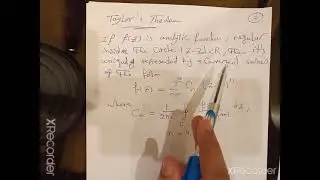 Taylor's Theorem
If f(z) is analytic function, regular
inside the circle |z-z₀|<R, then it is
uniquely represented by a convergent series
of the form
f(z) = Σ Cₙ (z-z₀)ⁿ
where
Cₙ = 1/2πi
XRecorder
XRecorder